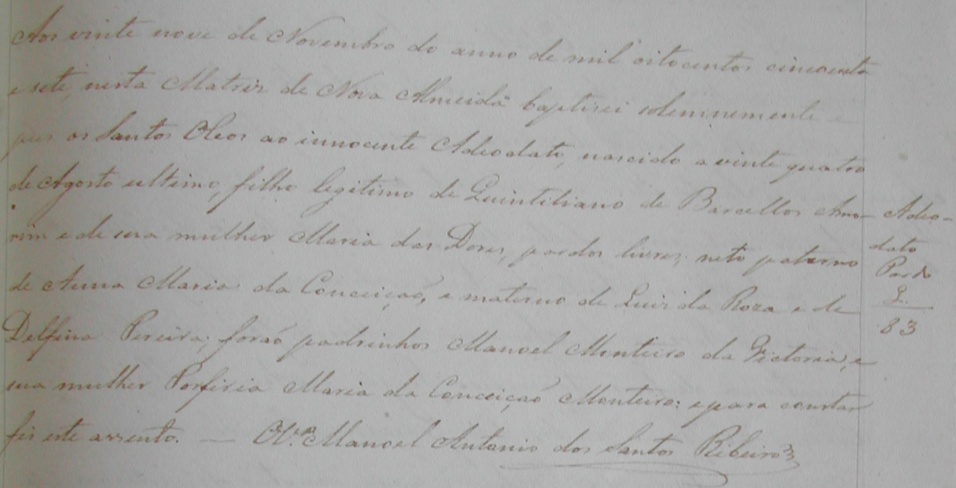 Aos vinte nove de Novembro do anno de mil oitocentos cincoenta
e sete, nesta Matriz de Nova Almeida baptisei solemnemente e
puz os Santos Oleos ao innocente Adeodato, nascido a vinte quatro
de Agosto ultimo, filho legitimo de Quintiliano de Barcellos Amo-
rim e de sua mulher Maria das Dores, pardos livres; neto paterno
de Anna Maria da Conceição, e materno de Luiz da Roza e de
Delfina Pereira; forão padrinhos Manoel Monteiro da Victoria, e
sua mulher Porfiria Maria da Conceição Monteiro: e para constar
fiz este assento. — O Vigº Manoel Antonio dos Santos Ribeiro
Adeo-
dato
Pardo
L.
83